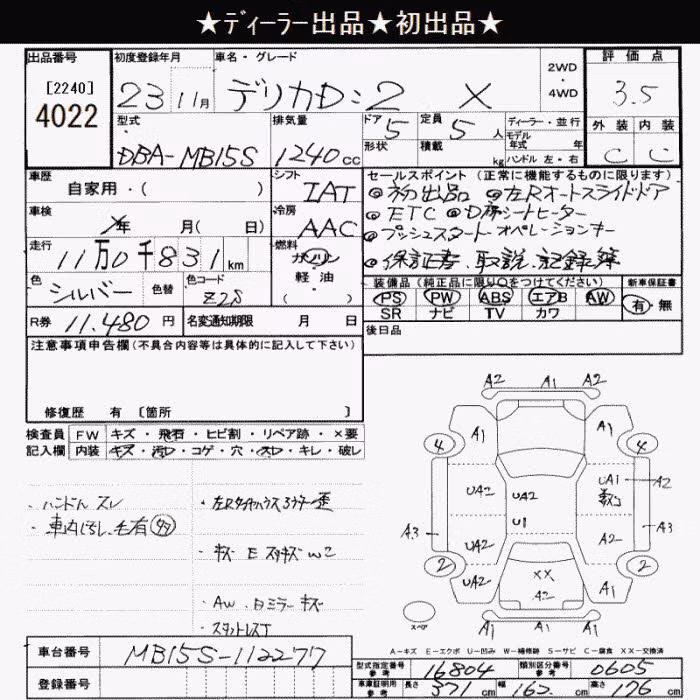 ★ディーラー出品★初出品★
出品番号
[2240]
4022
初度登録年月
23 11月
車名・グレード
デリカD:2 X
2WD
・
4WD
評価点
3.5
外装 内装
C C
型式
DBA-MB15S
排気量
1240cc
ドア 5
形状
定員 5人
積載 kg
ディーラー・並行
モデル
年式 年
ハンドル 左・右
車歴
自家用・( )
シフト
IAT
セールスポイント (正常に機能するものに限ります)
初出品 左Rオートスライドドア
ETC D席シートヒーター
プッシュスタートオペレーションキー
保証書、取説、記録簿
車検
年 月( 日)
冷房
AAC
走行
11万0千831km
燃料
ガソリン
軽・油
( )
色
シルバー
色替
色コード
Z2S
装備品 (純正品に限り○をつけてください)
PS PW ABS エアB AW
SR ナビ TV カワ
新車保証書
有・無
R券 11,480円
名変通知期限 月 日
後日品
注意事項申告欄(不具合内容等は具体的に記入して下さい)
修復歴 有 [箇所 ]
検査員
記入欄
FW キズ・飛石・ヒビ割・リペア跡・×要
内装 キズ・汚レ・コゲ・穴・スレ・キレ・破レ
・ハンドル スレ
・AW、ミラー キズ
A2 A1 A2
4 A1 A1 4
UA2 UA2 UA1 A2
U1
A3 UA2 A2 A3
2 UA2 XX A2 A1 2
A1 A1
スペア
A-キズ E-エクボ U-凹み W-補修跡 S-サビ C-腐食 XX-交換済
車台番号
MB15S-112277
登録番号
型式指定番号
参考
16804
類別区分番号
参考
0605
車庫証明用
参考
長さ 371cm 幅 cm 高さ 176cm